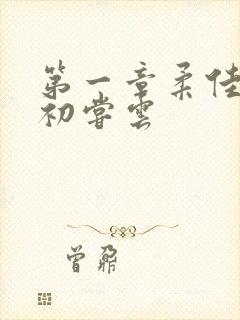 第一章柔佳
初尝云
曾鼐